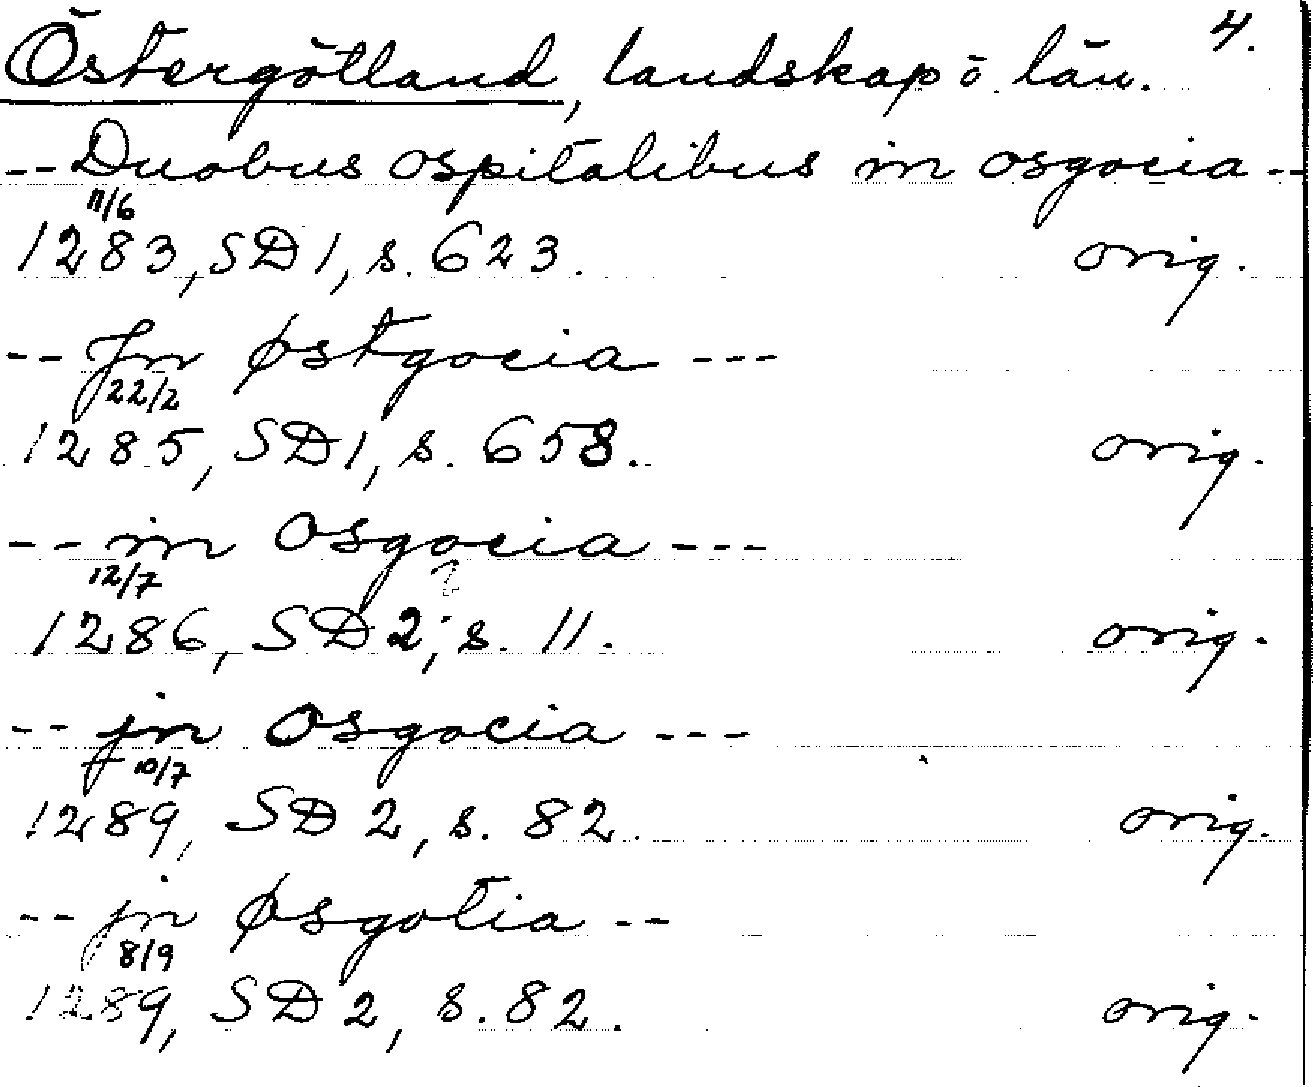 4.
Östergötland, landskap o. län.
-- Duobus ospitalibus in osgocia --
11/6
1283, SD 1, s. 623. orig.
-- Jn østgocia ---
22/2
1285, SD 1, s. 658. orig.
-- in Osgocia ---
12/7
1286, SD 2, s. 11. orig.
-- jn Osgocia ---
10/7
1289, SD 2, s. 82. orig.
-- jn øsgotia --
8/9
1289, SD 2, s. 82. orig.